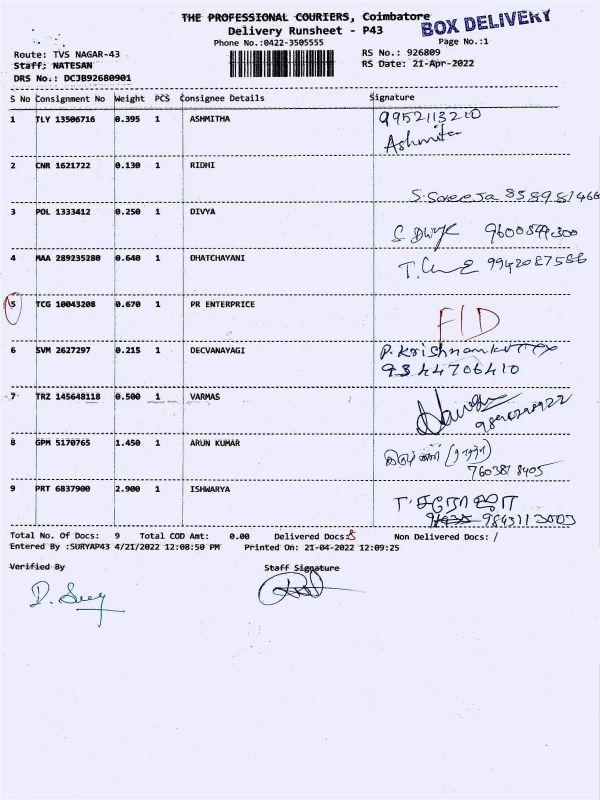 THE PROFESSIONAL COURIERS, Coimbatore
BOX DELIVERY
Delivery Runsheet - P43
Phone No.:0422-3505555
Page No.:1
Route: TVS NAGAR-43
RS No.: 926809
Staff: NATESAN
RS Date: 21-Apr-2022
DRS No.: DCJB92680901
S No Consignment No Weight PCS Consignee Details Signature
1 TLY 13506716 0.395 1 ASHMITHA 9952113210
Ashmita
2 CNR 1621722 0.130 1 RIDHI
3 POL 1333412 0.250 1 DIVYA
4 MAA 289235280 0.640 1 DHATCHAYANI 9942087586
5 TCG 10043208 0.670 1 PR ENTERPRICE
6 SVM 2627297 0.215 1 DECVANAYAGI P. Krishnamk
9344706410
7 TRZ 145648118 0.500 1 VARMAS
8 GPM 5170765 1.450 1 ARUN KUMAR
7603818405
9 PRT 6837900 2.900 1 ISHWARYA T. சரோஜா
9843113003
Total No. Of Docs: 9 Total COD Amt: 0.00 Delivered Docs:8 Non Delivered Docs: 1
Entered By :SURYAP43 4/21/2022 12:08:50 PM Printed On: 21-04-2022 12:09:25
Verified By Staff Signature